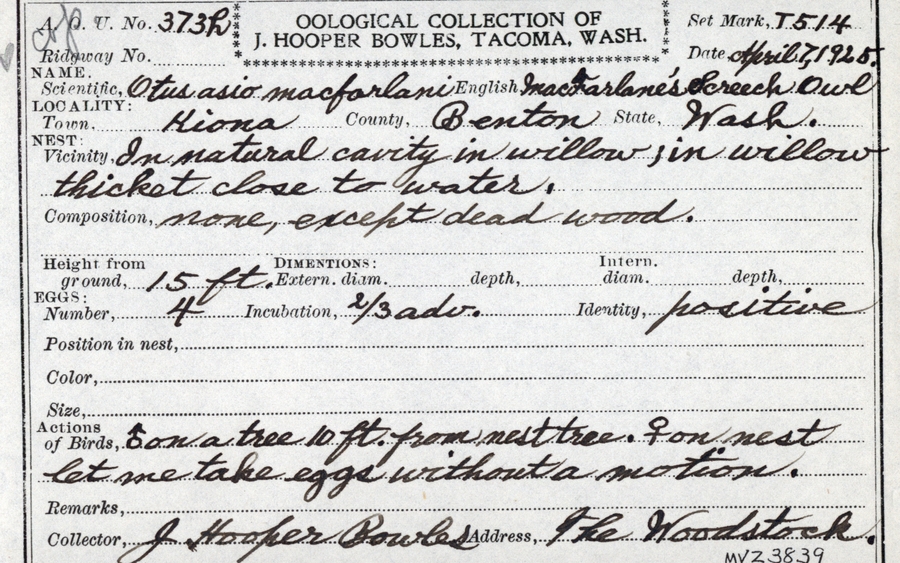 A. O. U. No. 373h OOLOGICAL COLLECTION OF Set Mark, T514
J. HOOPER BOWLES, TACOMA, WASH.
Ridgway No. Date April 7, 1925.
NAME:
Scientific, Otus asio macfarlani English, MacFarlane's Screech Owl
LOCALITY:
Town, Kiona County, Benton State, Wash.
NEST:
Vicinity, In natural cavity in willow; in willow
thicket close to water.
Composition, none, except dead wood.
Height from ground, 15 ft. DIMENTIONS: Extern. diam. depth, Intern. diam. depth,
EGGS:
Number, 4 Incubation, 2/3 adv. Identity, positive
Position in nest,
Color,
Size,
Actions
of Birds, ♂ on a tree 10 ft. from nest tree. ♀ on nest
let me take eggs without a motion.
Remarks,
Collector, J. Hooper Bowles Address, The Woodstock.
MVZ 3839